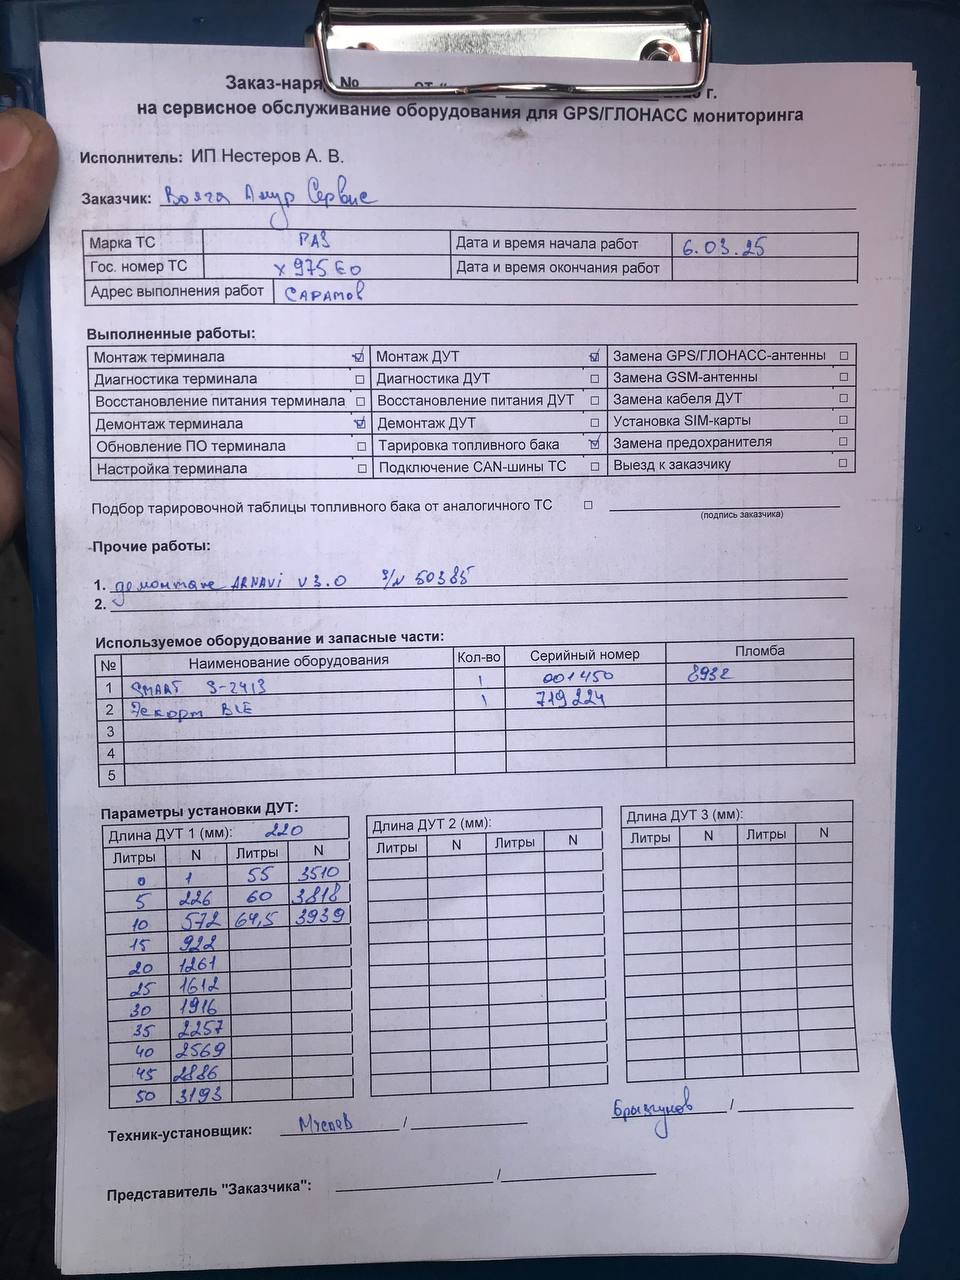 Заказ-наря № от "
г.
на сервисное обслуживание оборудования для GPS/ГЛОНАСС мониторинга
Исполнитель: ИП Нестеров А. В.
Заказчик: Волга Амур Сервис
Марка ТС ПАЗ Дата и время начала работ 6.03.25
Гос. номер ТС х 975 ЕО Дата и время окончания работ
Адрес выполнения работ Саратов
Выполненные работы:
Монтаж терминала ☑ Монтаж ДУТ ☑ Замена GPS/ГЛОНАСС-антенны □
Диагностика терминала □ Диагностика ДУТ □ Замена GSM-антенны □
Восстановление питания терминала □ Восстановление питания ДУТ □ Замена кабеля ДУТ □
Демонтаж терминала ☑ Демонтаж ДУТ □ Установка SIM-карты □
Обновление ПО терминала □ Тарировка топливного бака ☑ Замена предохранителя □
Настройка терминала □ Подключение CAN-шины ТС □ Выезд к заказчику □
Подбор тарировочной таблицы топливного бака от аналогичного ТС □
(подпись заказчика)
Прочие работы:
1. демонтаж ARNAVI V 3.0 S/N 50385
2.
Используемое оборудование и запасные части:
№ Наименование оборудования Кол-во Серийный номер Пломба
1 SMART S-2413 1 001450 8932
2 Эскорт BLE 1 719224
3
4
5
Параметры установки ДУТ:
Длина ДУТ 1 (мм): 220 Длина ДУТ 2 (мм): Длина ДУТ 3 (мм):
Литры N Литры N Литры N Литры N Литры N Литры N
0 1 55 3510
5 226 60 3818
10 572 64,5 3939
15 922
20 1261
25 1612
30 1916
35 2257
40 2569
45 2886
50 3193
Техник-установщик: / Брызгунов /
Представитель "Заказчика": /